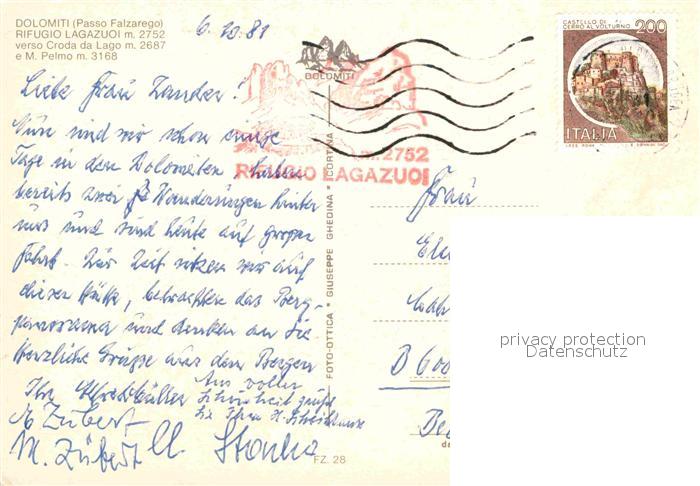 DOLOMITI (Passo Falzarego)
RIFUGIO LAGAZUOI m. 2752
verso Croda da Lago m. 2687
e M. Pelmo m. 3168
6.10.81
CASTELLO DI
CERRO AL VOLTURNO 200
ITALIA
DOLOMITI
m. 2752
RIFUGIO LAGAZUOI
Liebe Frau Zander!
Nun sind wir schon einige
Tage in den Dolomiten, haben
bereits zwei Wanderungen hinter
uns und sind heute auf großer
Fahrt. Zur Zeit sitzen wir auf
dieser Hütte, betrachten das Berg-
panorama und denken an Sie
Herzliche Grüße aus den Bergen
Ihr
Aus voller
Schönheit grüßt
Sie Ihre H.
Zübert
M. Zübert
FOTO-OTTICA * GIUSEPPE GHEDINA * CORTINA
FZ. 28
Frau
B 600
privacy protection
Datenschutz